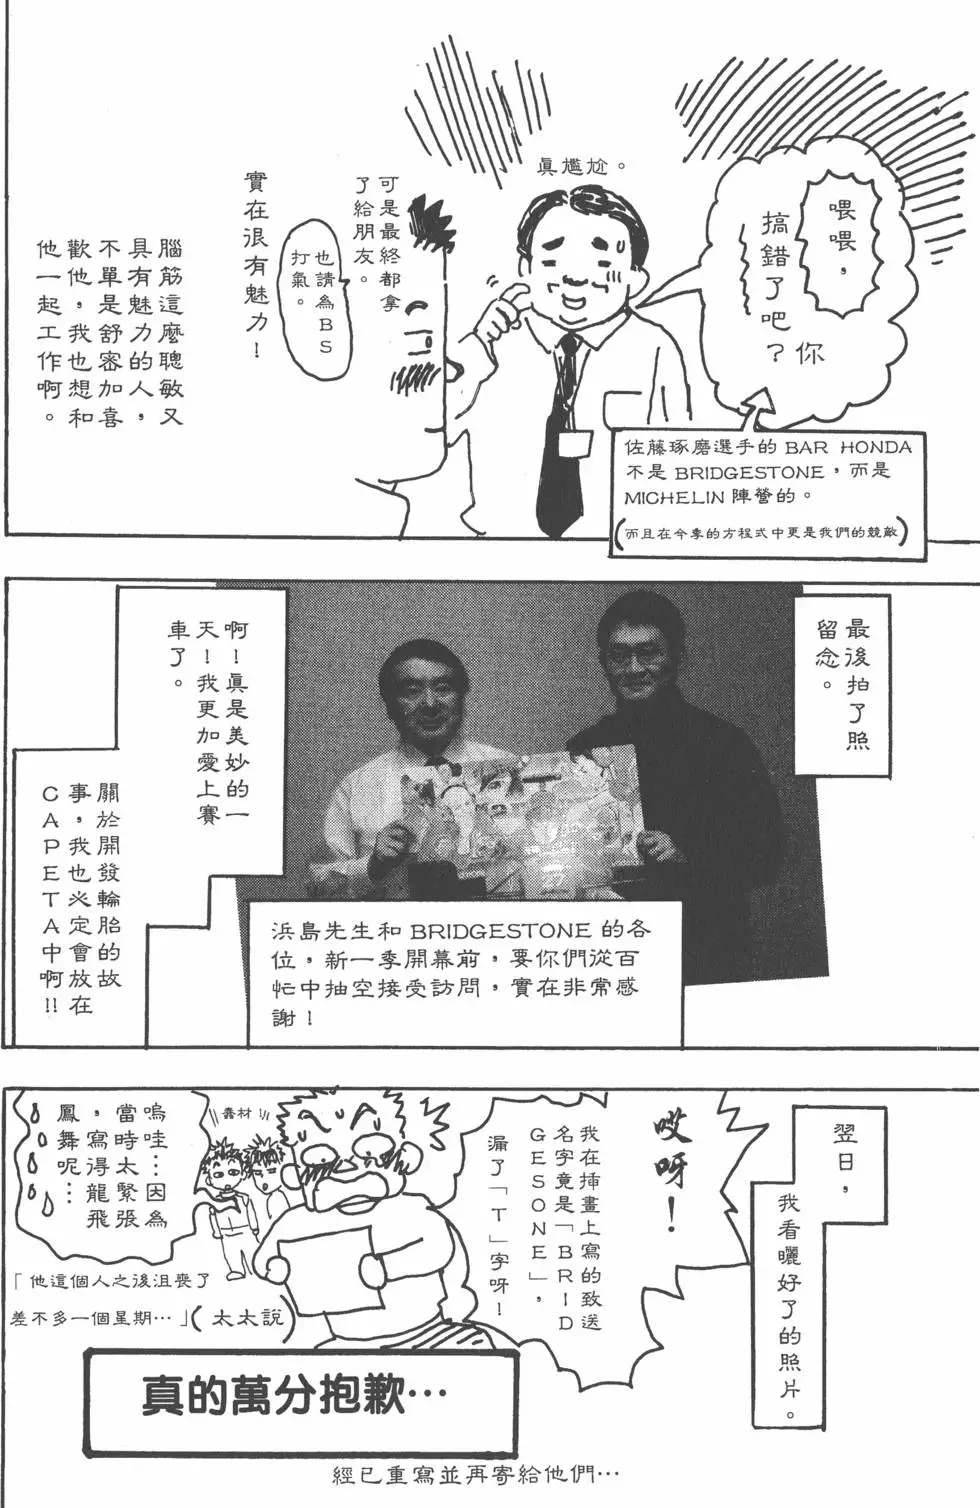 喂喂，
搞錯了吧？你
佐藤琢磨選手的 BAR HONDA
不是 BRIDGESTONE，而是
MICHELIN 陣營的。
（而且在今季的方程式中更是我們的競敵）
真尷尬。
可是最終都拿
了給朋友。
也請為BS
打氣。
實在很有魅力！
腦筋這麼聰敏又
具有魅力的人，
不單是舒審加喜
歡他，我也想和
他一起工作啊。
最後拍了照
留念。
啊！真是美妙的一
天！我更加愛上賽
車了。
關於開發輪胎的故
事，我也必定會放在
CAPETA中啊!!
浜島先生和 BRIDGESTONE 的各
位，新一季開幕前，要你們從百
忙中抽空接受訪問，實在非常感
謝！
翌日，
我看曬好了的照片。
哎呀！
我在插畫上寫的致送
名字竟是「BRID
GESONE」，
漏了「T」字呀！
蠢材
嗚哇…因為
當時太緊張
，寫得龍飛
鳳舞呢…
「他這個人之後沮喪了
差不多一個星期…」（太太說）
真的萬分抱歉…
經已重寫並再寄給他們…